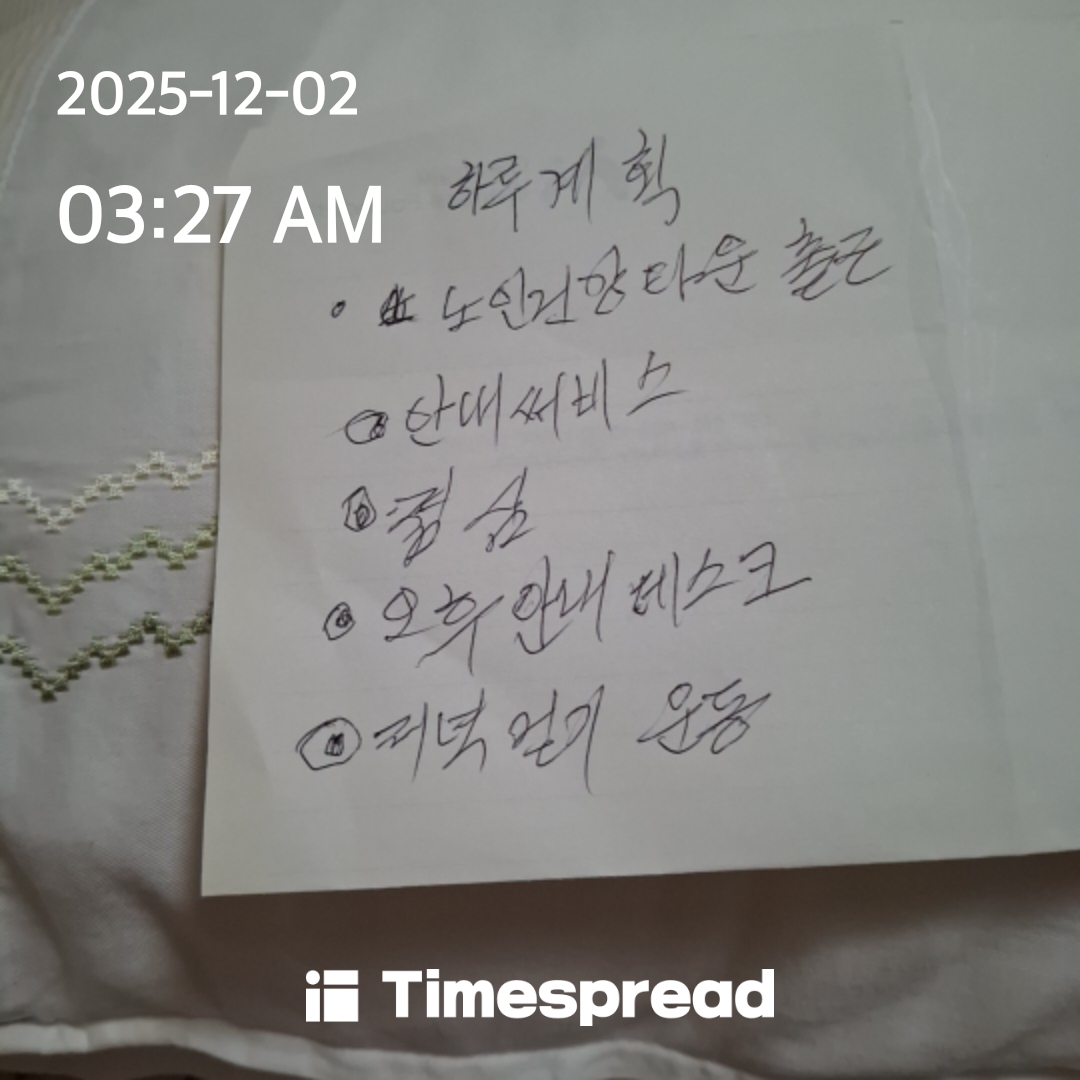 2025-12-02
03:27 AM
하루계획
노인건강타운 출근
안내써비스
점심
오후 안내 데스크
저녁 걷기 운동
Timespread